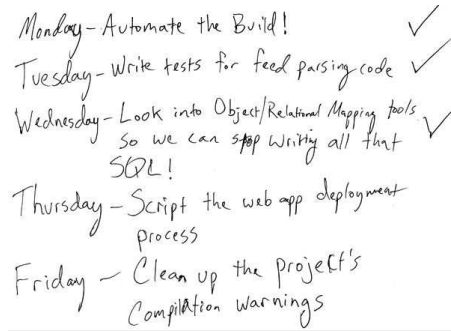 Monday - Automate the Build! ✓
Tuesday - Write tests for feed parsing code ✓
Wednesday - Look into Object/Relational Mapping tools ✓
so we can stop writing all that
SQL!
Thursday - Script the web app deployment
process
Friday - Clean up the project's
Compilation warnings